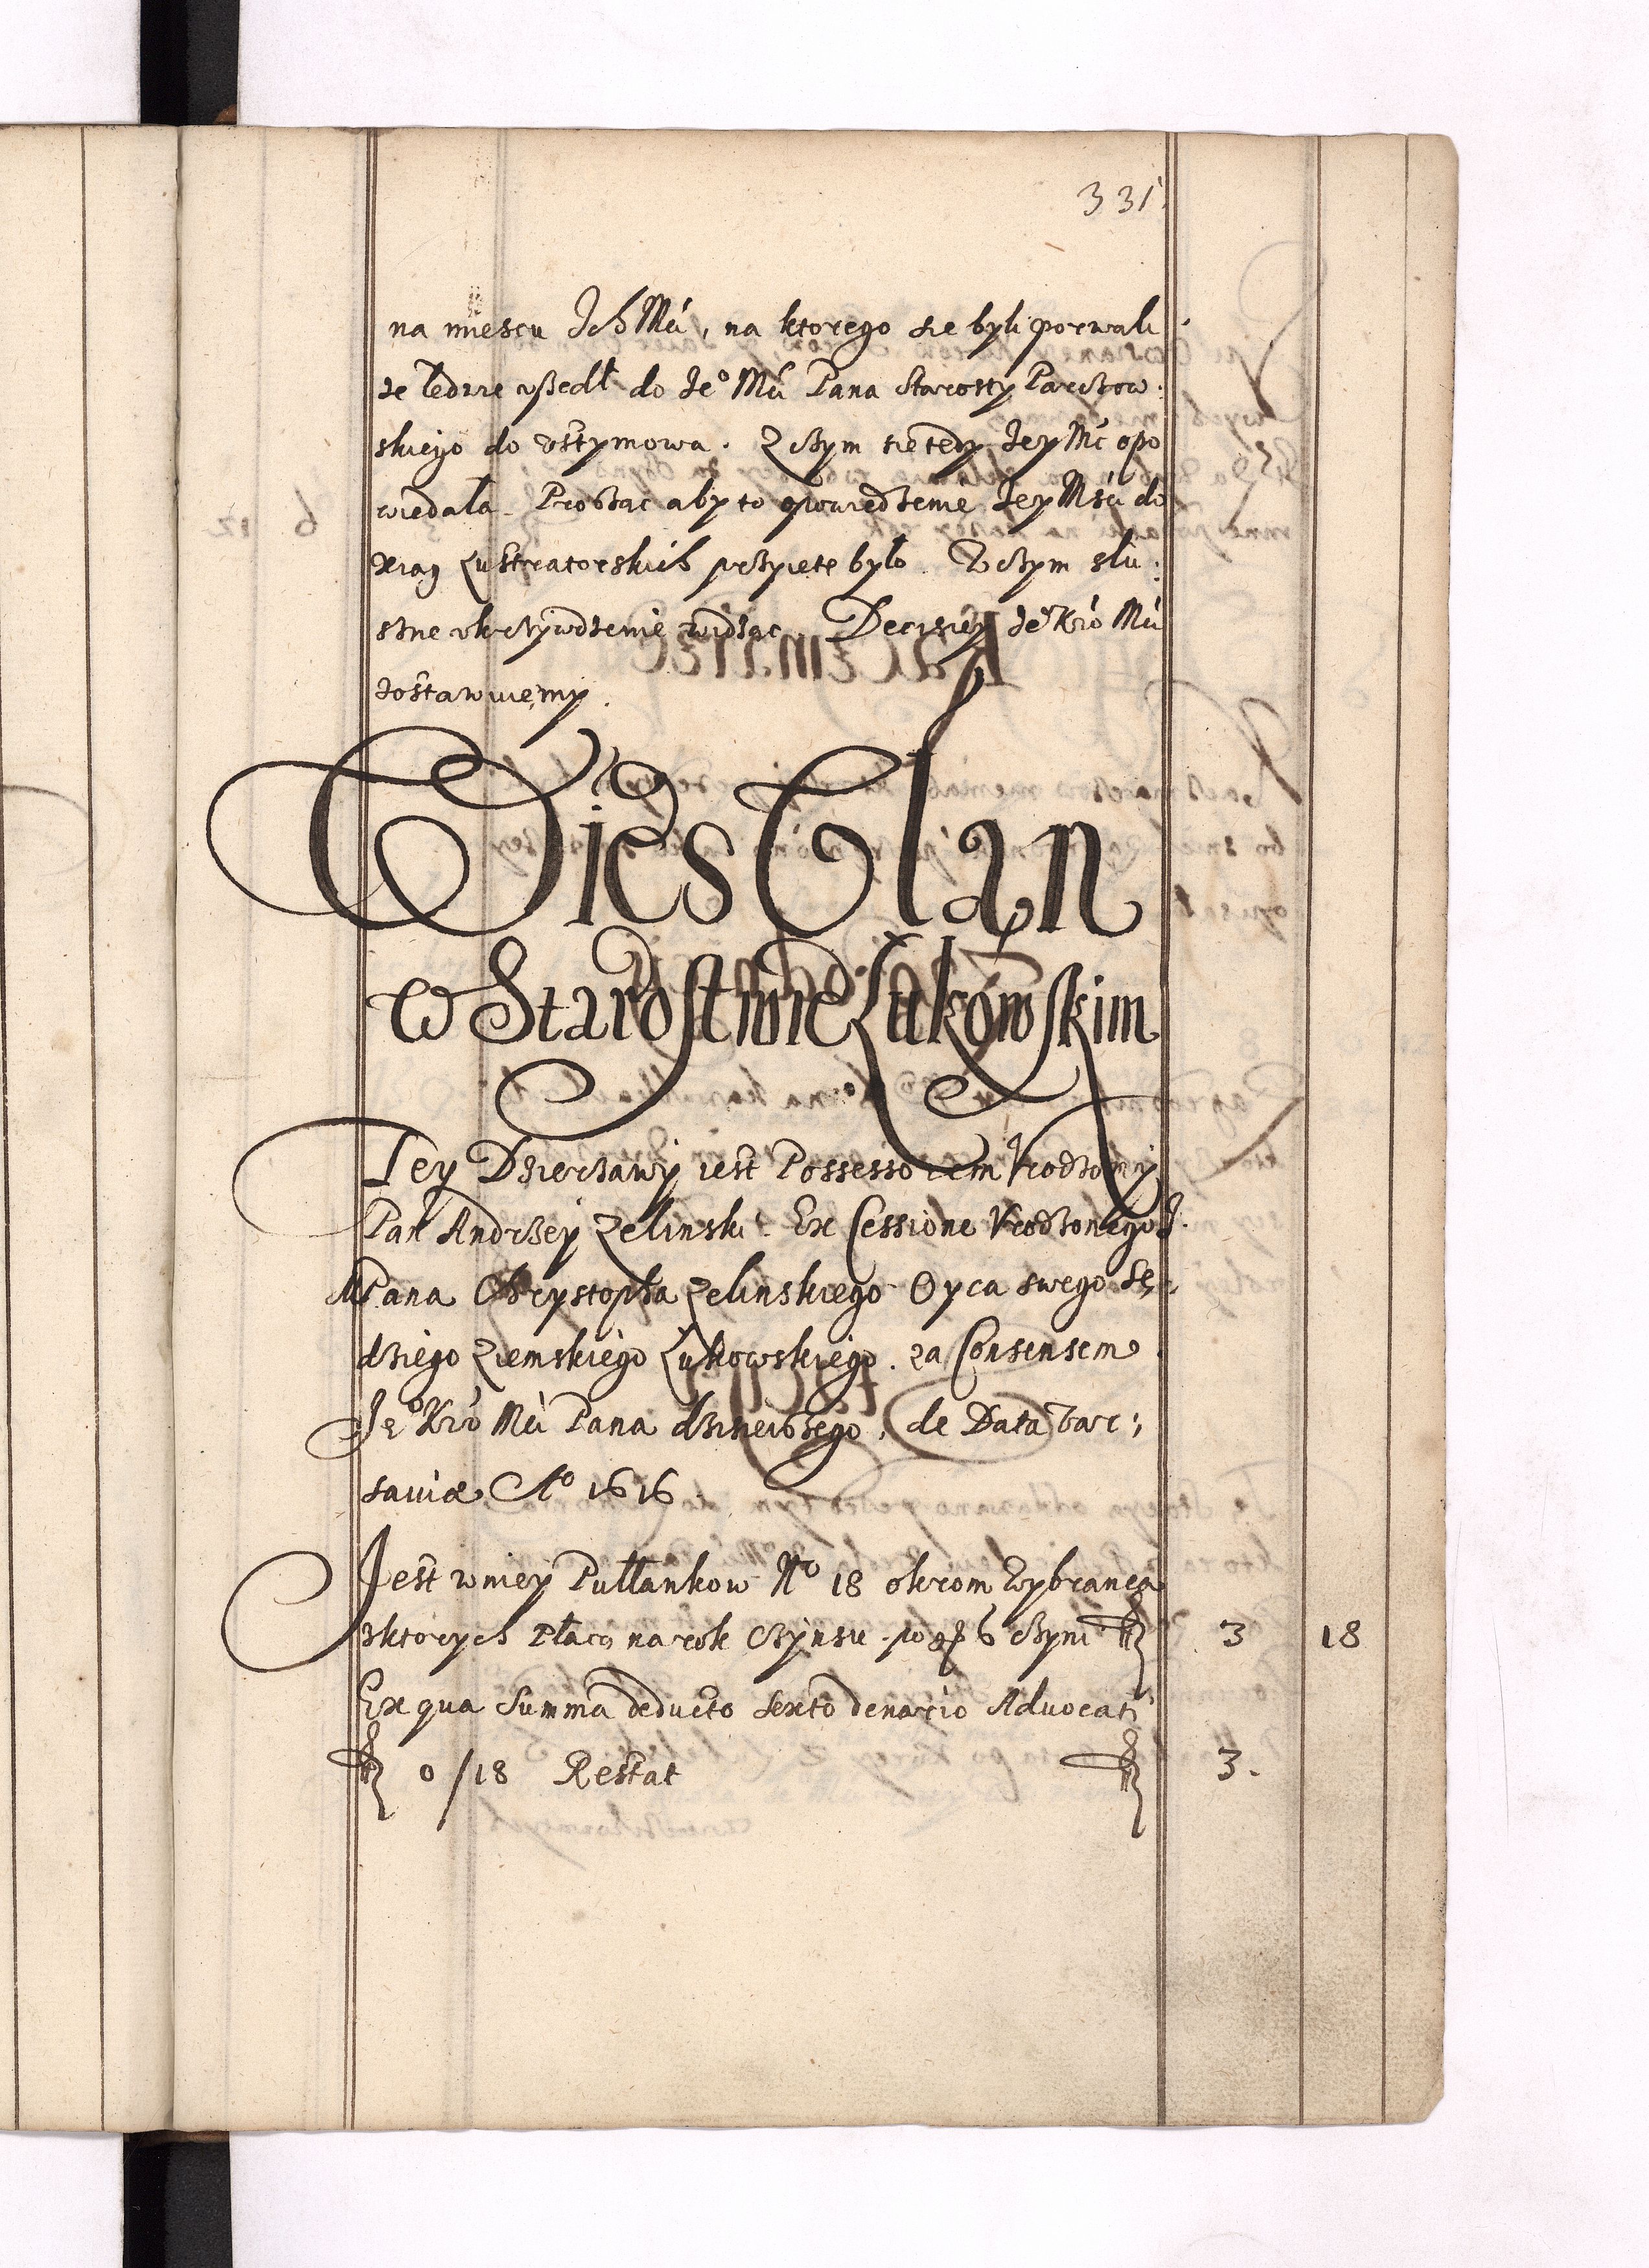 331
na miescu Ich Mći, na ktorego sie byli porwali
ze ledwe vszedł do Je° Mći Pana Starosty Parczow:
skiego do Ostymowa. Z czym sie tedy Jey Mć opo
wiedała. Prosząc aby to opowiedzenie Jey Mści do
xiąg Lustratorskich przyięte było. W czym słu:
szne vkrzywdzenie widząc Decisiey Je° Kró Mći
zostawuiemy.
Wies Glan
w Starostwie Łukowskim
Tey Dzierzawy iest Possessorem Vrodzony
Pan Andrzey Zelinski. Ex Cessione Vrodzonego J.
M Pana Chrystopha Zelinskiego Oyca swego Sę:
dziego Ziemskiego Łukowskiego. za Consensem
Je° Kró Mći Pana dzisieiszego, de Data Var:
saviæ A° 1616
Jest w niey Pułłankow N° 18 okrom Wybranca
z ktorych Płacą na rok Czynszu po gr 6 czyni 3 18
Ex qua Summa deducto sexto denario Advocati
0/18 Restat 3.